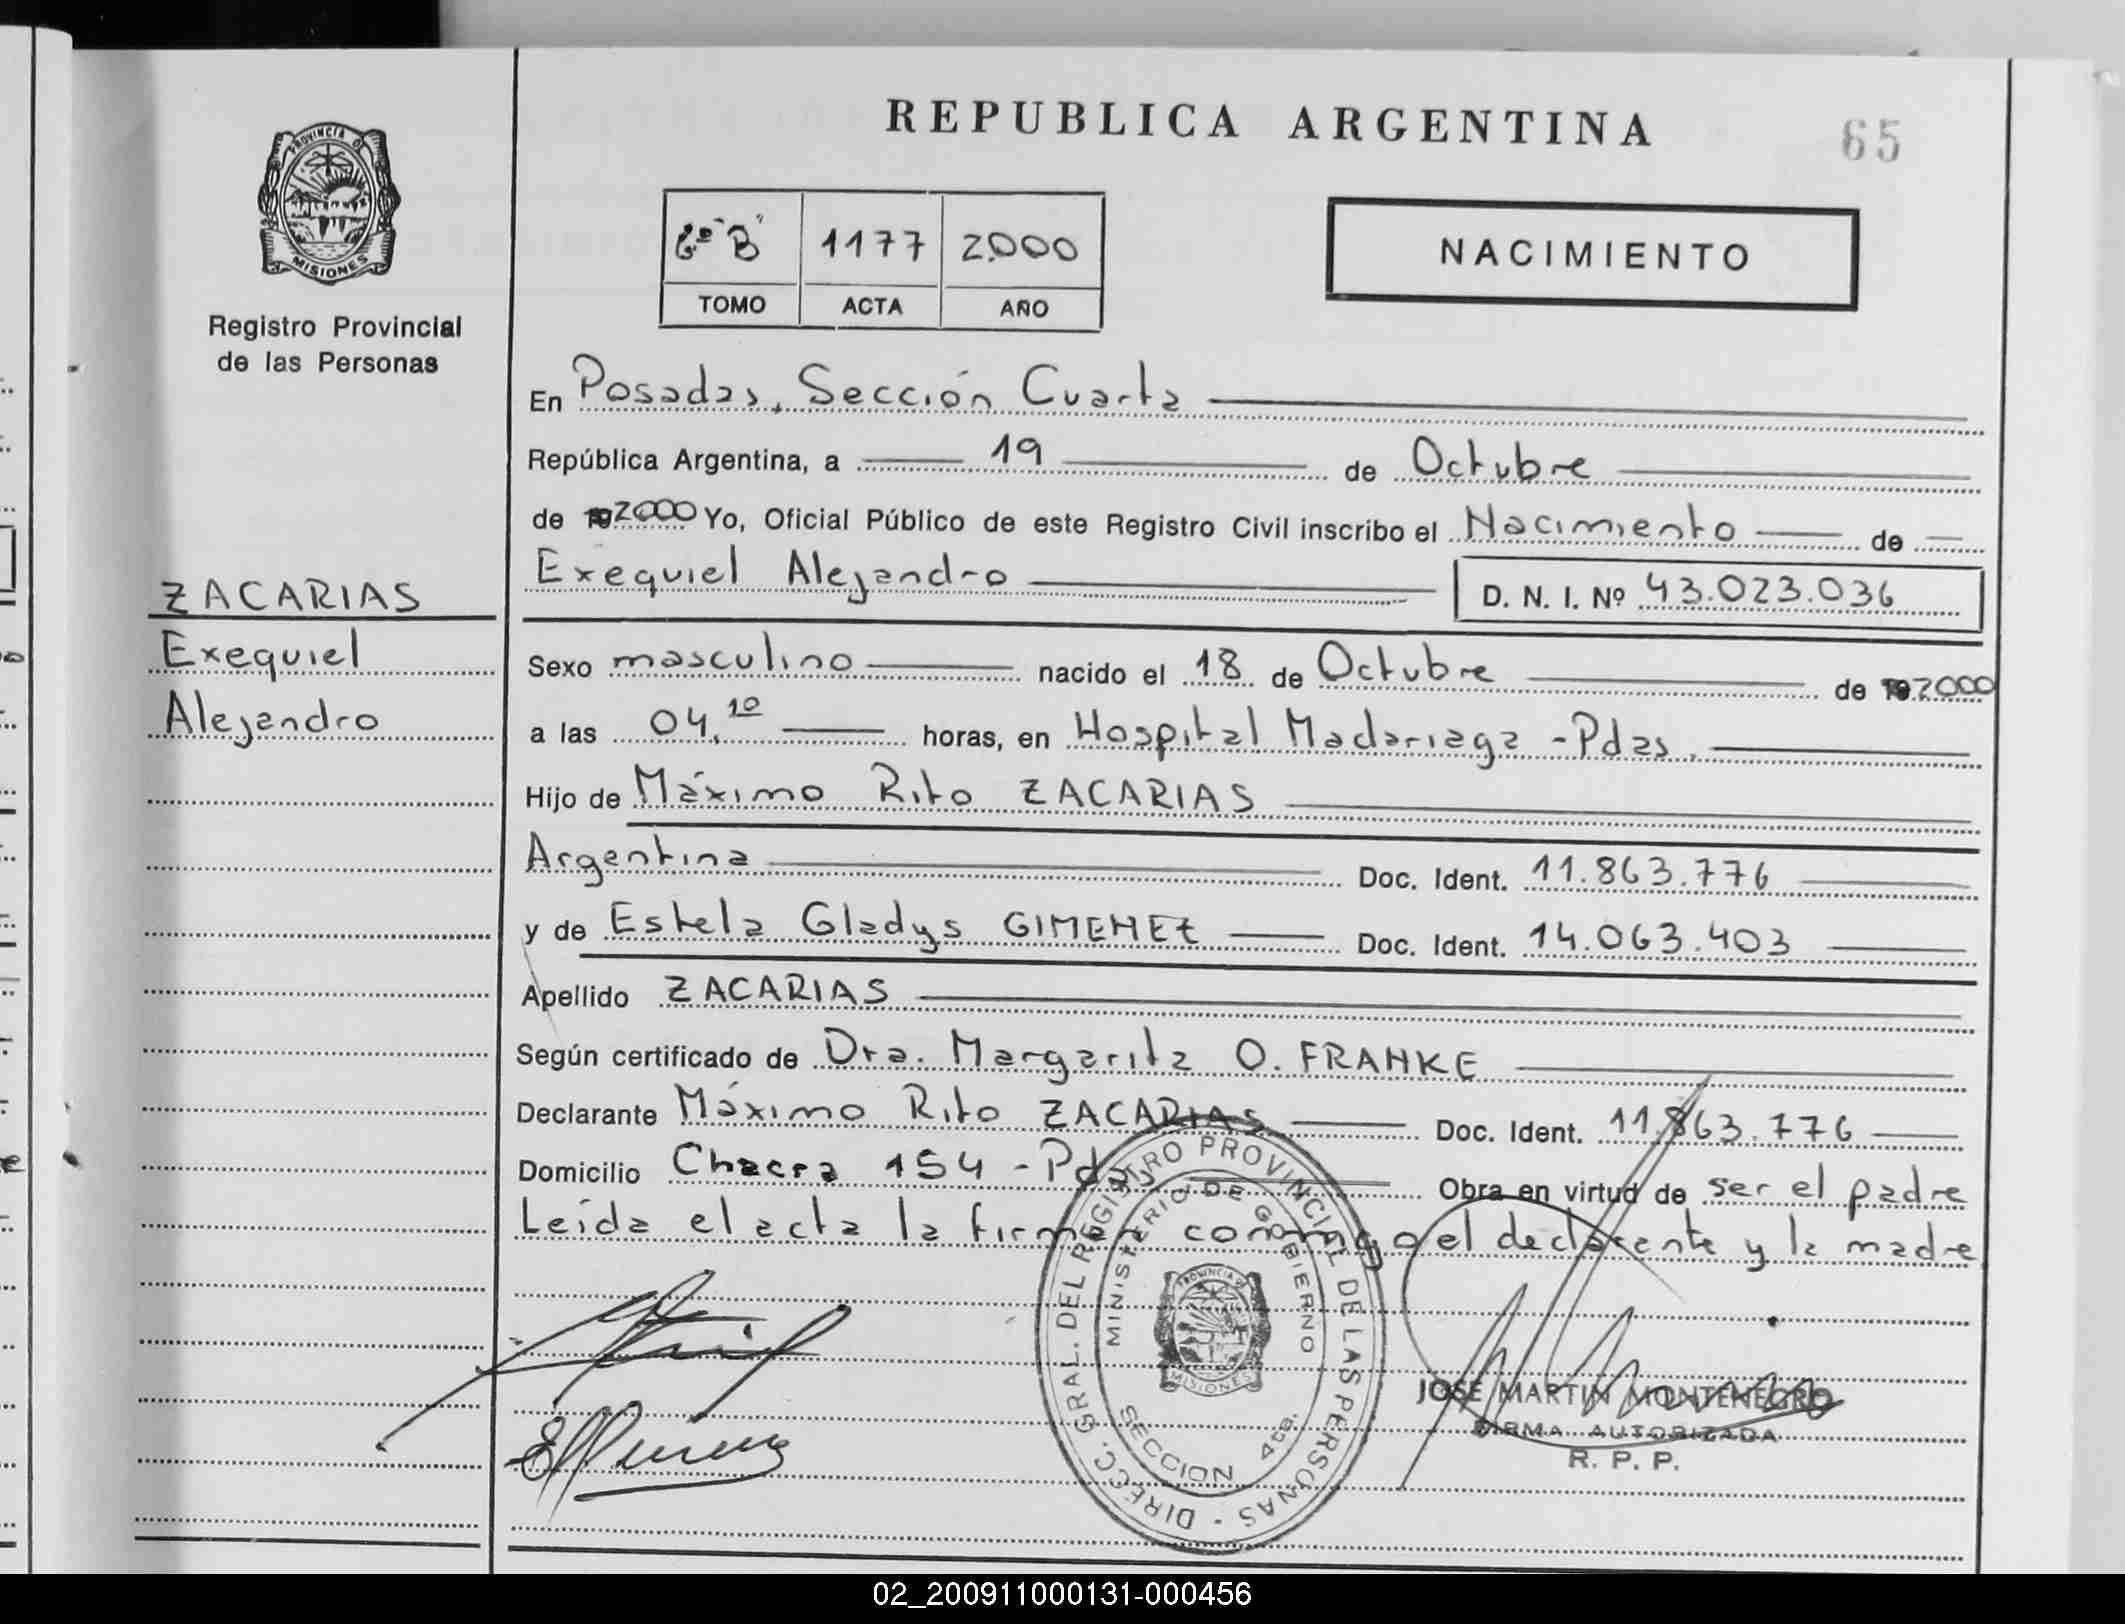 REPUBLICA ARGENTINA
65
PROVINCIA DE
MISIONES
Registro Provincial
de las Personas
6º "B" 1177 2.000
TOMO ACTA AÑO
NACIMIENTO
En Posadas, Sección Cuarta
República Argentina, a 19 de Octubre
de 2000 Yo, Oficial Público de este Registro Civil inscribo el Nacimiento de
Exequiel Alejandro D. N. I. Nº 43.023.036
ZACARIAS
Exequiel
Alejandro
Sexo masculino nacido el 18 de Octubre de 2000
a las 04,10 horas, en Hospital Madariaga - Pdas.
Hijo de Máximo Rito ZACARIAS
Argentina Doc. Ident. 11.863.776
y de Estela Gladys GIMENEZ Doc. Ident. 14.063.403
Apellido ZACARIAS
Según certificado de Dra. Margarita O. FRANKE
Declarante Máximo Rito ZACARIAS Doc. Ident. 11.863.776
Domicilio Chacra 154 - Pdas Obra en virtud de ser el padre
Leída el acta la firman conmigo el declarante y la madre
DIRECC. GRAL. DEL REGISTRO PROVINCIAL DE LAS PERSONAS
MINISTERIO DE GOBIERNO
PROVINCIA DE
MISIONES
SECCION 4ta.
JOSE MARTIN MONTENEGRO
FIRMA AUTORIZADA
R. P. P.
02_200911000131-000456